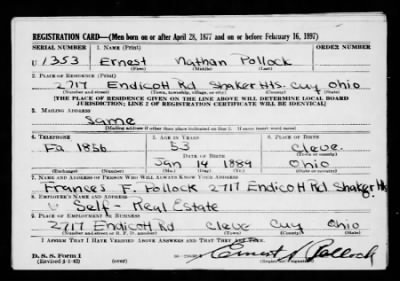 REGISTRATION CARD—(Men born on or after April 28, 1877 and on or before February 16, 1897)
SERIAL NUMBER 1. NAME (Print)
U 1353 Ernest Nathan Pollock
(First) (Middle) (Last)
2. PLACE OF RESIDENCE (Print)
2717 Endicott Rd Shaker Hts. Cuy Ohio
(Number and street) (Town, township, village, or city) (County) (State)
[THE PLACE OF RESIDENCE GIVEN ON THE LINE ABOVE WILL DETERMINE LOCAL BOARD
JURISDICTION; LINE 2 OF REGISTRATION CERTIFICATE WILL BE IDENTICAL]
3. MAILING ADDRESS
Same
(Mailing address if other than place indicated on line 2. If same insert word same)
4. TELEPHONE 5. AGE IN YEARS 6. PLACE OF BIRTH
Fa 1856 53 Cleve.
DATE OF BIRTH (Town or county)
Jan 14 1889 Ohio
(Exchange) (Number) (Mo.) (Day) (Yr.) (State or country)
7. NAME AND ADDRESS OF PERSON WHO WILL ALWAYS KNOW YOUR ADDRESS
Frances F. Pollock 2717 Endicott Rd Shaker Hts
8. EMPLOYER'S NAME AND ADDRESS
Self - Real Estate
9. PLACE OF EMPLOYMENT OR BUSINESS
2717 Endicott Rd Cleve Cuy Ohio
(Number and street or R. F. D. number) (Town) (County) (State)
I AFFIRM THAT I HAVE VERIFIED ABOVE ANSWERS AND THAT THEY ARE TRUE.
D. S. S. Form 1
(Revised 4-1-42) (over) Ernest N Pollock